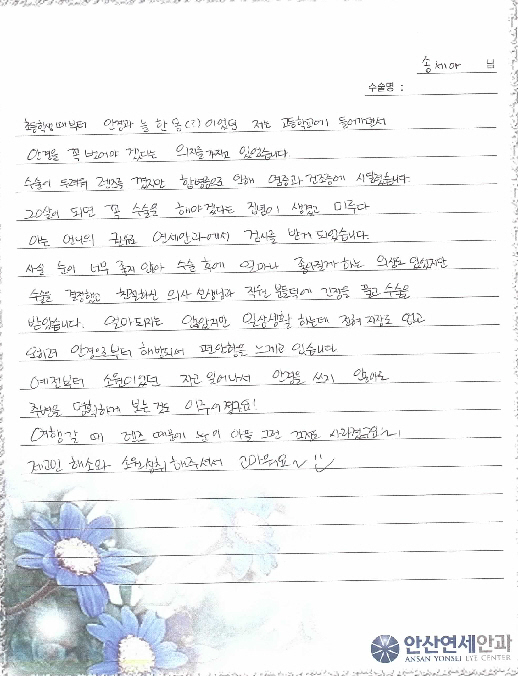 송세아 님
수술명 :
초등학생때부터 안경과 늘 한 몸(?)이었던 저는 고등학교에 들어가면서
안경을 꼭 벗어야 겠다는 의지를 가지고 있었습니다.
수술이 두려워 렌즈를 꼈지만 합병증으로 인해 염증과 건조증에 시달렸습니다.
20살이 되면 꼭 수술을 해야겠다는 집념이 생겼고 미루다
아는 언니의 권유로 연세안과에서 검사를 받게 되었습니다.
사실 눈이 너무 좋지 않아 수술 후에 얼마나 좋아질까 하는 의심도 있었지만
수술을 결정했고 친절하신 의사 선생님과 직원 분들덕에 긴장을 풀고 수술을
받았습니다. 얼마 되지는 않았지만 일상생활 하는데 전혀 지장도 없고
오히려 안경으로부터 해방되어 편안함을 느끼고 있습니다.
예전부터 소원이었던 자고 일어나서 안경을 쓰지 않아도
주변을 뚜렷하게 보는 것도 이루어졌구요!
여행갈 때 렌즈 때문에 눈이 아플 그런 걱정도 사라졌구요~!
제 고민 해소와 소원성취 해주셔서 고마워요~
안산연세안과
ANSAN YONSEI EYE CENTER